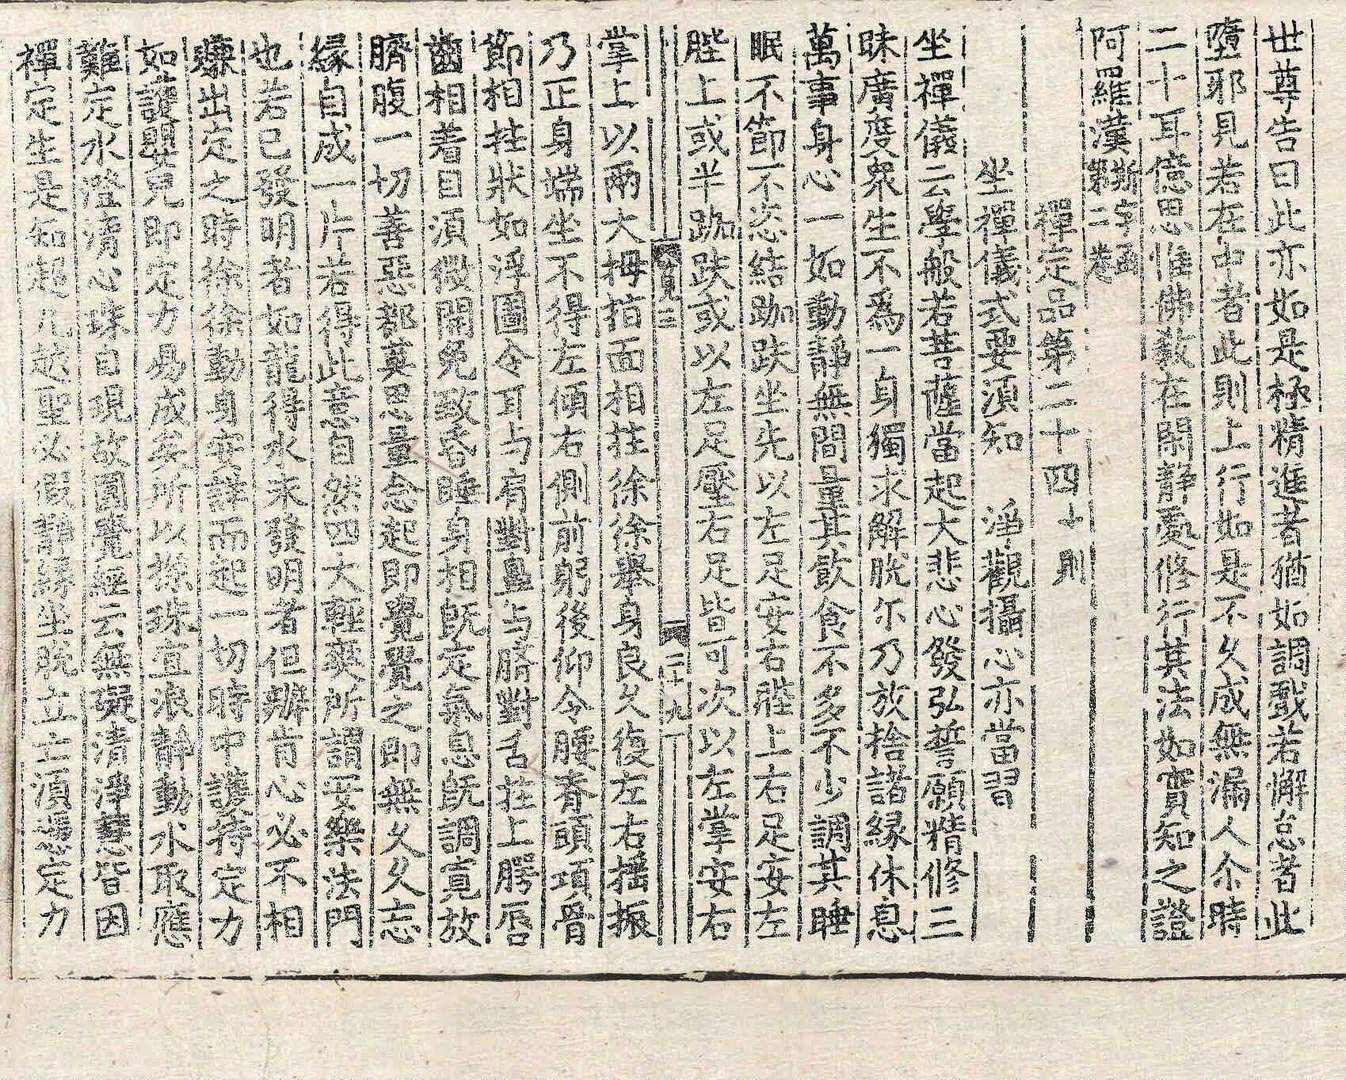 世尊告曰此亦如是極精進者猶如調戲若懈怠者此
墮邪見若在中者此則上行如是不久成無漏人尒時
二十耳億思惟佛教在閑静處修行其法如實知之證
阿羅漢斯字函第二卷
禪定品第二十四十則
坐禪儀式要須知　淨觀攝心亦當習
坐禪儀云學般若菩薩當起大悲心發弘誓願精修三
昧廣度衆生不爲一身獨求解脫尓乃放捨諸緣休息
萬事身心一如動静無間量其飲食不多不少調其睡
眠不節不恣結跏趺坐先以左足安右䏶上右足安左
䏶上或半跏趺或以左足壓右足皆可次以左掌安右
覽三　二十九
掌上以兩大拇指面相拄徐徐舉身良久復左右揺振
乃正身端坐不得左傾右側前躬後仰令腰脊頭項骨
節相拄狀如浮圖令耳与肩對鼻与臍對舌拄上腭唇
齒相着目須微開免致昏睡身相既定氣息既調寬放
臍腹一切善惡都莫思量念起即覺覺之即無久久忘
緣自成一片若得此意自然四大輕爽所謂安樂法門
也若已發明者如龍得水未發明者但辦肯心必不相
賺出定之時徐徐動身安詳而起一切時中護持定力
如護嬰兒即定力易成矣所以探珠宜浪静動水取應
難定水澄清心珠自現故圓覺經云無礙清淨慧皆因
禪定生是知超凡越聖必假静緣坐脫立亡須憑定力